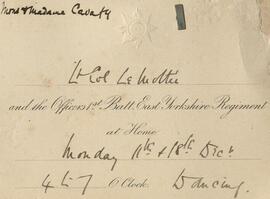 Mons & Madame Cavafy
Lt Col Le Mottée
and the Officers 1st Batt. East Yorkshire Regiment
at Home
Monday 11th & 18th Dec.
4 to 7 O'Clock. Dancing.